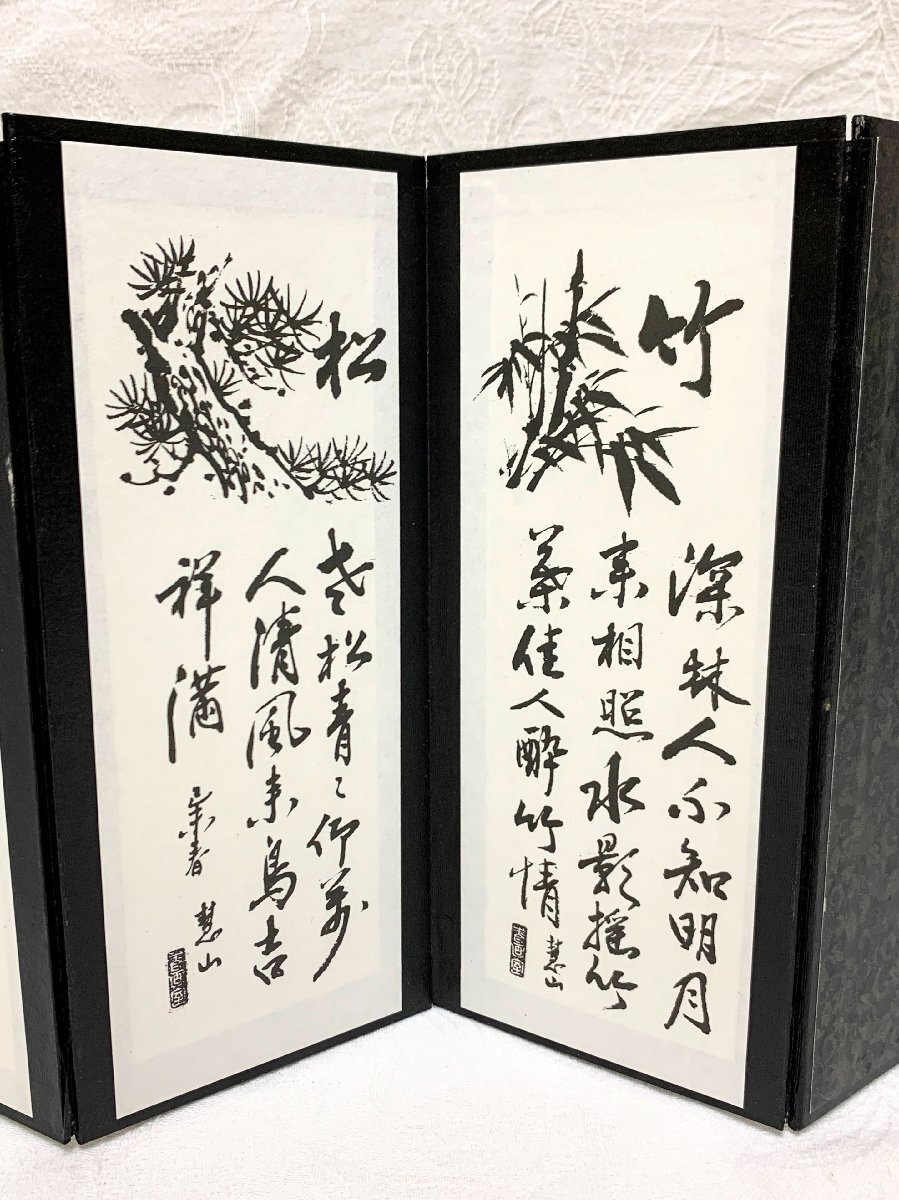 竹
深林人不知明月
来相照水影揺竹
葉佳人酔竹情 慧山
松
老松青々仰萬
人清風来鳥吉
祥満
春 慧山